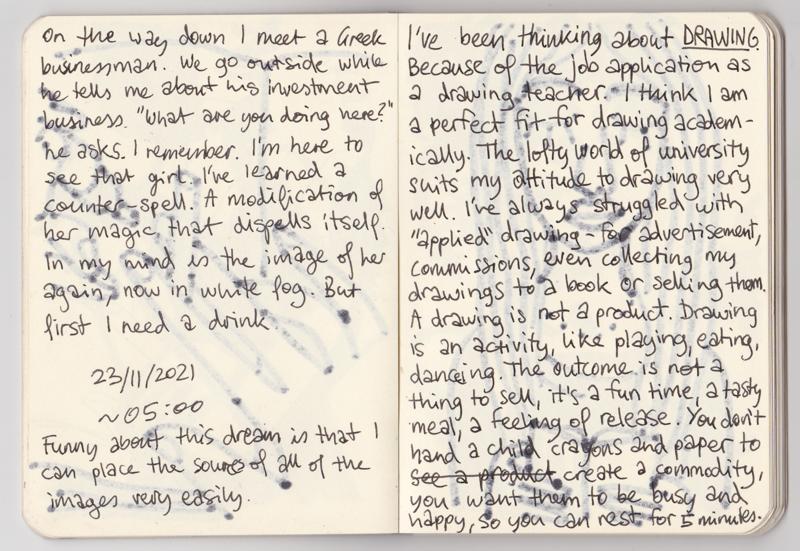 On the way down I meet a Greek
businessman. We go outside while
he tells me about his investment
business. "What are you doing here?"
he asks. I remember. I'm here to
see that girl. I've learned a
counter-spell. A modification of
her magic that dispells itself.
In my mind is the image of her
again, now in white fog. But
first I need a drink.
23/11/2021
~05:00
Funny about this dream is that I
can place the source of all of the
images very easily.
I've been thinking about DRAWING
Because of the job application as
a drawing teacher. I think I am
a perfect fit for drawing academ-
ically. The lofty world of university
suits my attitude to drawing very
well. I've always struggled with
"applied" drawing - for advertisement,
commissions, even collecting my
drawings to a book or selling them.
A drawing is not a product. Drawing
is an activity, like playing, eating,
dancing. The outcome is not a
thing to sell, it's a fun time, a tasty
meal, a feeling of release. You don't
hand a child crayons and paper to
see a product create a commodity,
you want them to be busy and
happy, so you can rest for 5 minutes.